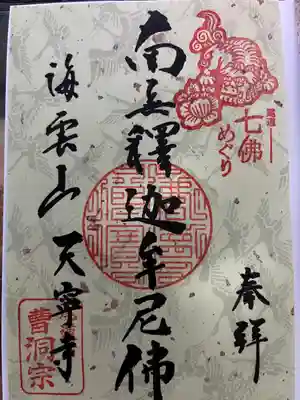 尾道
七佛
めぐり
奉拝
南无釋迦牟尼佛
海雲山天寧寺
曹洞宗